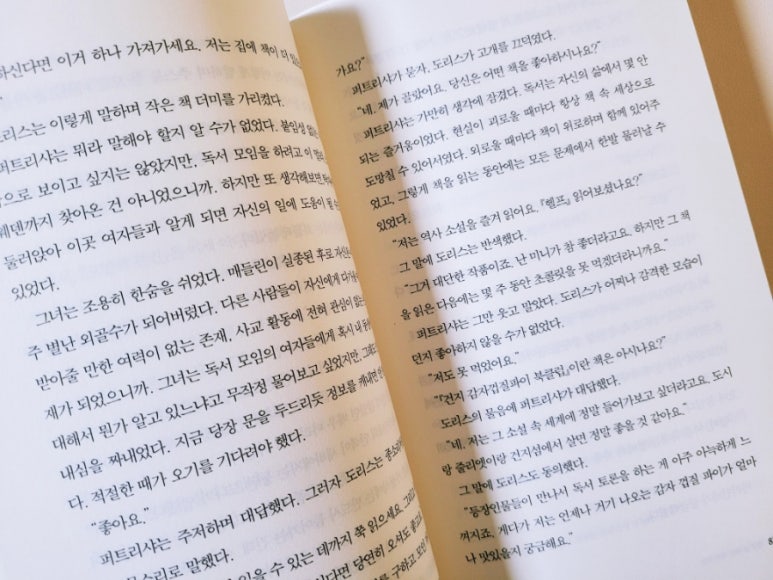 하신다면 이거 하나 가져가세요. 저는 집에 책이 더 있
리스는 이렇게 말하며 작은 책 더미를 가리켰다.
퍼트리샤는 뭐라 말해야 할지 알 수가 없었다. 붙임성 없는
으로 보이고 싶지는 않았지만, 독서 모임을 하려고 이 먼
웨덴까지 찾아온 건 아니었으니까. 하지만 또 생각해보면,
둘러앉아 이곳 여자들과 알게 되면 자신의 일에 도움이 될 수
있었다.
그녀는 조용히 한숨을 쉬었다. 매들린이 실종된 후로 자신은
주 별난 외골수가 되어버렸다. 다른 사람들이 자신에게 다가
받아줄 만한 여력이 없는 존재, 사교 활동에 전혀 관심이 없는
제가 되었으니까. 그녀는 독서 모임의 여자들에게 혹시 내
대해서 뭔가 알고 있느냐고 무작정 물어보고 싶었지만, 그래도
내심을 짜내었다. 지금 당장 문을 두드리듯 정보를 캐내면 안
다. 적절한 때가 오기를 기다려야 했다.
“좋아요.”
퍼트리샤는 주저하며 대답했다. 그러자 도리스는
있을 수 있는 데까지 쭉 읽으세요.
목소리로 말했다.
다면 당연히 오셔도 좋고
를 구하고
가요?”
퍼트리샤가 묻자, 도리스가 고개를 끄덕였다.
“네. 제가 골랐어요. 당신은 어떤 책을 좋아하시나요?”
퍼트리샤는 가만히 생각에 잠겼다. 독서는 자신의 삶에서 몇 안
되는 즐거움이었다. 현실이 괴로울 때마다 항상 책 속 세상으로
도망칠 수 있어서였다. 외로울 때마다 책이 위로하며 함께 있어주
었고, 그렇게 책을 읽는 동안에는 모든 문제에서 한발 물러날 수
있었다.
“저는 역사 소설을 즐겨 읽어요. 『헬프』 읽어보셨나요?”
그 말에 도리스는 반색했다.
“그거 대단한 작품이죠. 난 미니가 참 좋더라고요. 하지만 그 책
을 읽은 다음에는 몇 주 동안 초콜릿을 못 먹겠더라니까요.”
퍼트리샤는 그만 웃고 말았다. 도리스가 어찌나 감격한 모습이
던지 좋아하지 않을 수가 없었다.
“저도 못 먹었어요.”
“『건지 감자껍질파이 북클럽』이란 책은 아시나요?”
도리스의 물음에 퍼트리샤가 대답했다.
“네. 저는 그 소설 속 세계에 정말 들어가보고 싶더라고요. 도시
랑 줄리엣이랑 건지섬에서 살면 정말 좋을 것 같아요.”
그 말에 도리스도 동의했다.
“등장인물들이 만나서 독서 토론을 하는 게 아주 아늑하게 느
껴지죠. 게다가 저는 언제나 거기 나오는 감자 껍질 파이가 얼마
나 맛있을지 궁금해요.”